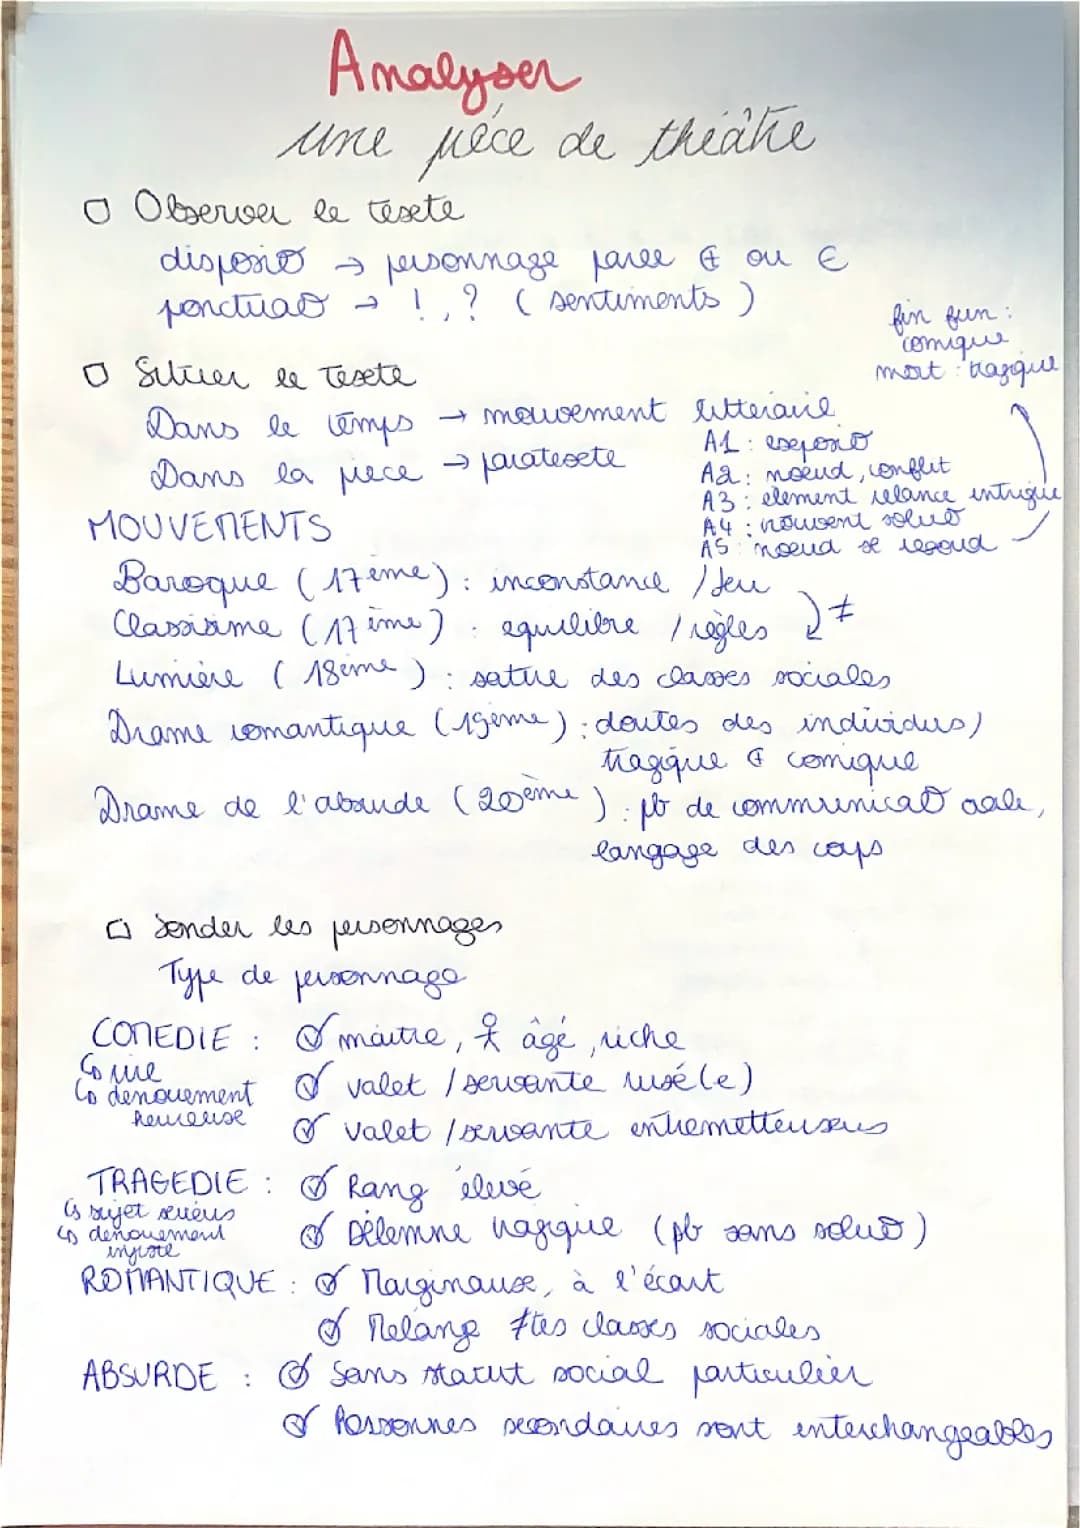 Analyser
une pièce de théâtre
□ Observer le texte
disposi° → personnage parle ⊕ ou ⊖
ponctua° → !, ? (sentiments)
fin fun :
comique
mort : tragique
□ Situer le texte
Dans le temps → mouvement littéraire
Dans la pièce → paratexte
A1 : exposi°
A2 : noeud, conflit
A3 : élement relance intrigue
A4 : solu°
A5 noeud se résoud
MOUVEMENTS
Baroque (17ème) : inconstance / Jeu
Classisime (17ème) : equilibre / règles ≠
Lumière (18ème) : satire des classes sociales
Drame romantique (19ème) : doutes des individus /
tragique ⊕ comique
Drame de l'absurde (20ème) : pb de communica° orale,
langage des corps
□ Sonder les personnages
Type de personnage
COMEDIE : maitre, âgé, riche
↳ rire
↳ denouement
heureuse
valet / servante rusé(e)
valet / servante entremetteuseurs
TRAGEDIE : Rang élevé
↳ sujet sérieux
↳ dénouement
injuste
Délemne tragique (pb sans solu°)
ROMANTIQUE : Marginause, à l'écart
Mélange ≠tes classes sociales
ABSURDE : Sans statut social particulier
Personnes secondaires sont interchangeables